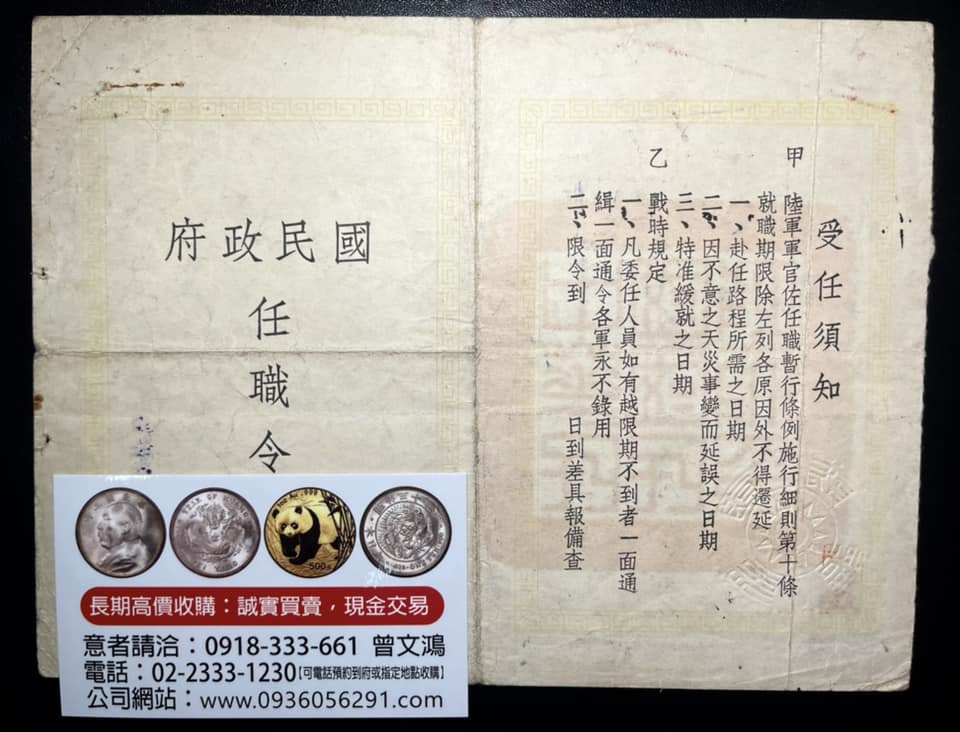 受任須知
甲 陸軍軍官佐任職暫行條例施行細則第十條
就職期限除左列各原因外不得遷延
一、赴任路程所需之日期
二、因不意之天災事變而延誤之日期
三、特准緩就之日期
乙 戰時規定
一、凡委任人員如有越限期不到者一面通
緝一面通令各軍永不錄用
二、限令到 日到差具報備查
國民政府
任職令
長期高價收購：誠實買賣，現金交易
意者請洽：0918-333-661 曾文鴻
電話：02-2333-1230【可電話預約到府或指定地點收購】
公司網站：www.0936056291.com